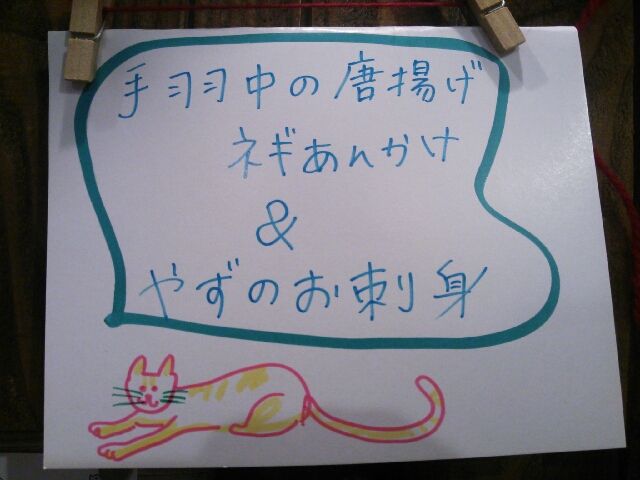 手羽中の唐揚げ
ネギあんかけ
&
やずのお刺身